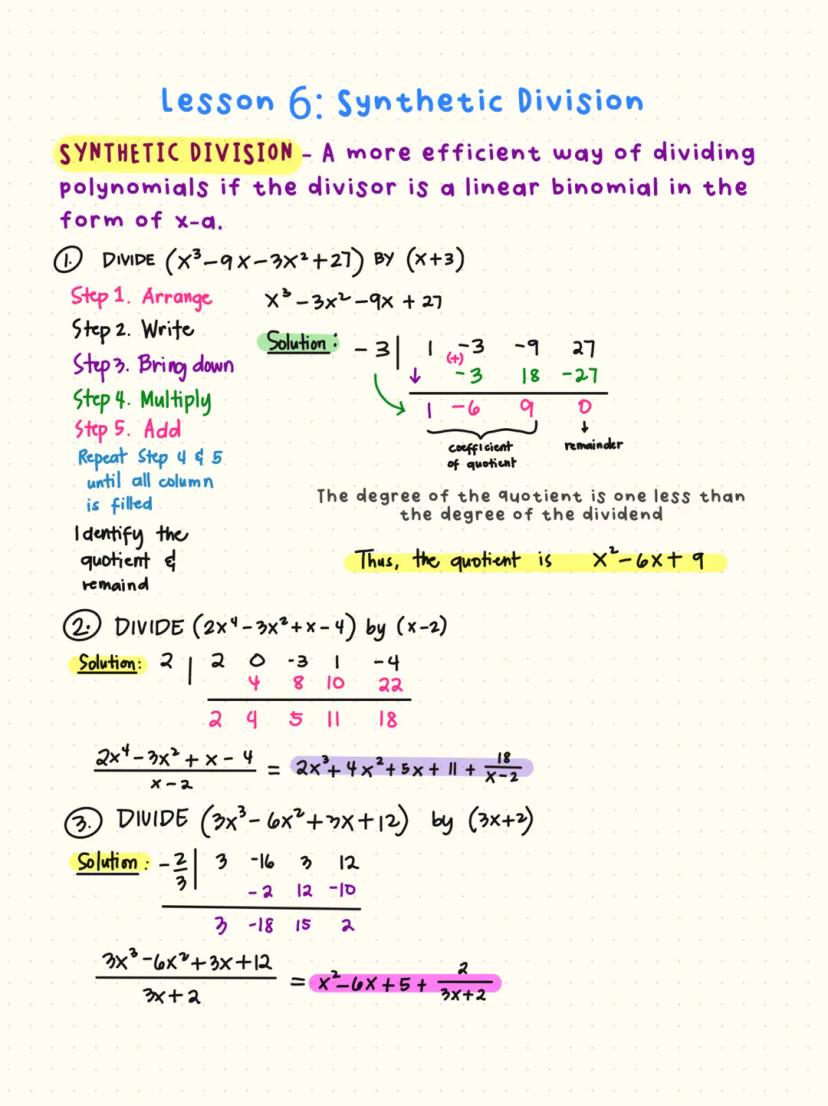 Lesson 6: Synthetic Division
SYNTHETIC DIVISION - A more efficient way of dividing
polynomials if the divisor is a linear binomial in the
form of x-a.
1. DIVIDE (x³-9x-3x²+27) BY (x+3)
Step 1. Arrange x³-3x²-9x+27
Step 2. Write
Solution: -3| 1 -3 -9 27
(+)
Step 3. Bring down ↓ -3 18 -27
Step 4. Multiply 1 -6 9 0
Step 5. Add
coefficient of quotient
↓ remainder
Repeat Step 4 & 5
until all column
is filled
The degree of the quotient is one less than
the degree of the dividend
Identify the
quotient &
remaind
Thus, the quotient is x²-6x+9
2. DIVIDE (2x⁴-3x²+x-4) by (x-2)
Solution: 2 | 2 0 -3 1 -4
4 8 10 22
2 4 5 11 18
2x⁴-3x²+x-4 / x-2 = 2x³+4x²+5x+11+ 18/x-2
3. DIVIDE (3x³-6x²+3x+12) by (3x+2)
Solution: -2/3| 3 -16 3 12
-2 12 -10
3 -18 15 2
3x³-6x²+3x+12 / 3x+2 = x²-6x+5+ 2/3x+2